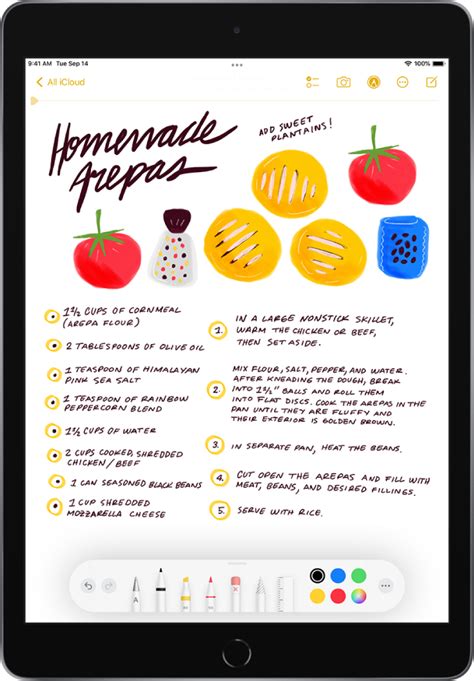 9:41 AM Tue Sep 14
100%
All iCloud
Homemade
Arepas
ADD SWEET
PLANTAINS!
1 1/2 CUPS OF CORNMEAL
(AREPA FLOUR)
2 TABLESPOONS OF OLIVE OIL
1 TEASPOON OF HIMALAYAN
PINK SEA SALT
1 TEASPOON OF RAINBOW
PEPPERCORN BLEND
CUPS OF WATER
2 CUPS COOKED, SHREDDED
CHICKEN/BEEF
1 CAN SEASONED BLACK BEANS
1 CUP SHREDDED
MOZZARELLA CHEESE
1. IN A LARGE NONSTICK SKILLET,
WARM THE CHICKEN OR BEEF,
THEN SET ASIDE.
2. MIX FLOUR, SALT, PEPPER, AND WATER.
AFTER KNEADING THE DOUGH, BREAK
INTO BALLS AND ROLL THEM
INTO FLAT DISCS. COOK THE AREPAS IN THE
PAN UNTIL THEY ARE FLUFFY AND
THEIR EXTERIOR IS GOLDEN BROWN.
3. IN SEPARATE PAN, HEAT THE BEANS.
4. CUT OPEN THE AREPAS AND FILL WITH
MEAT, BEANS, AND DESIRED FILLINGS.
5. SERVE WITH RICE.